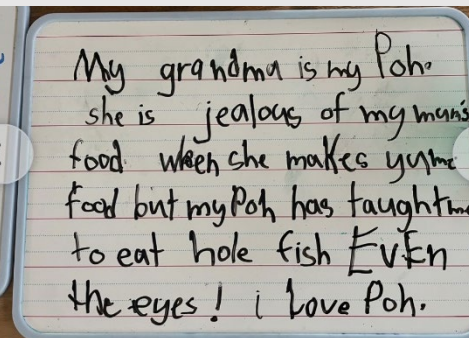 My grandma is my Poh.
she is jealous of my mum's
food when she makes yumm
food but my Poh has taught me
to eat hole fish EvEn
the eyes! i Love Poh.